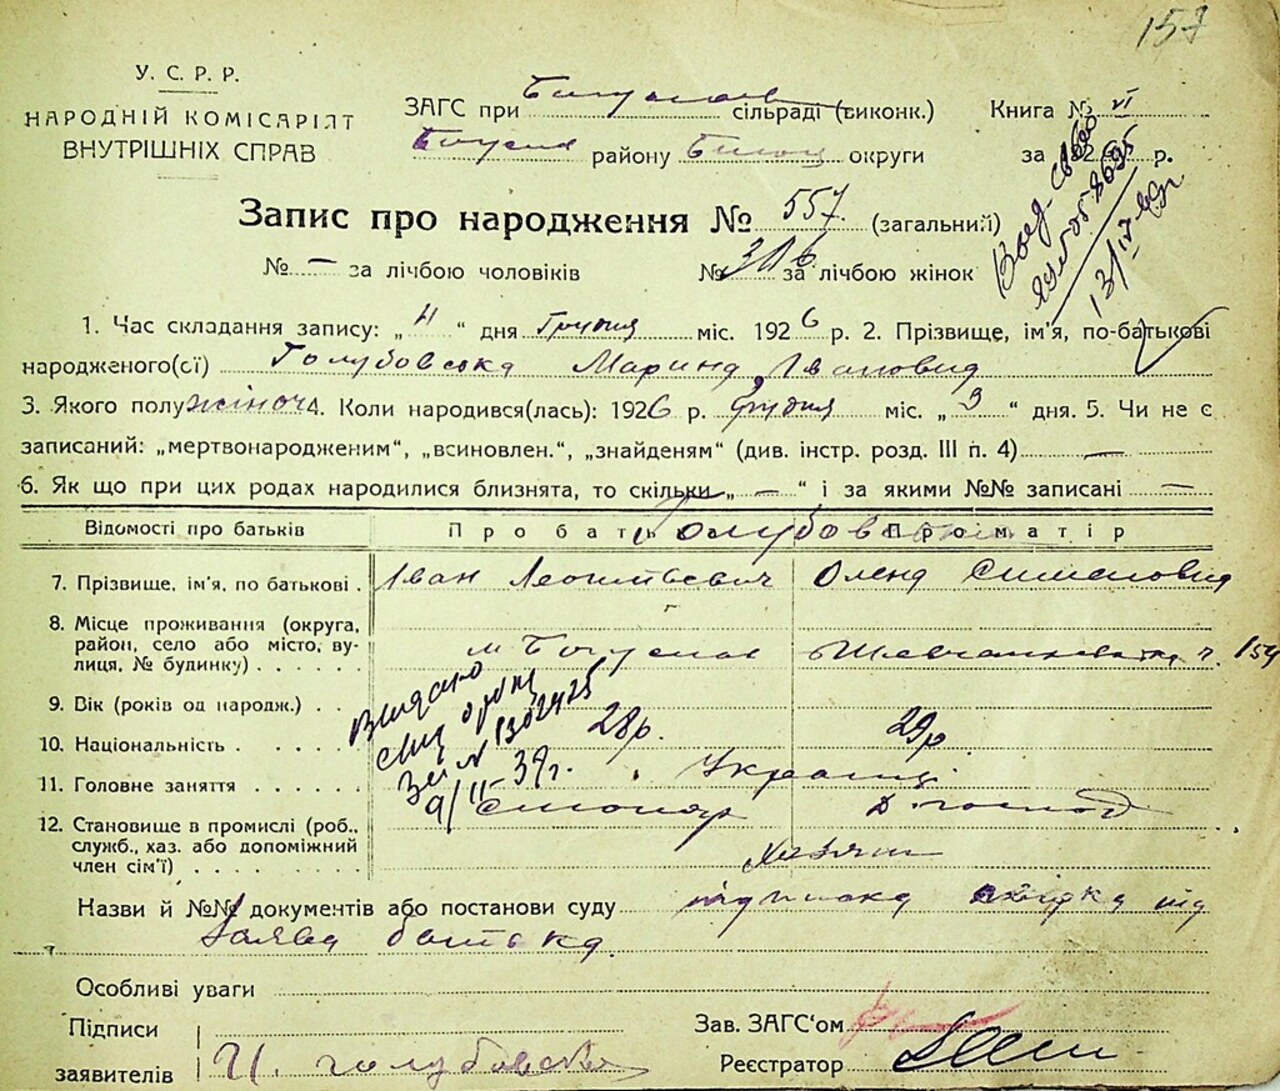 157
У. С. Р. Р.
НАРОДНІЙ КОМІСАРІЯТ
ВНУТРІШНІХ СПРАВ
ЗАГС при сільраді (виконк.)
району округи
Книга № VI
за 192 р.
Запис про народження № 557. (загальний)
№ — за лічбою чоловіків
№ 316 за лічбою жінок
1. Час складання запису: „ 4 “ дня Грудня міс. 1926 р. 2. Прізвище, ім'я, по-батькові
народженого(сї) Голубовська Марина Івановна
3. Якого полу жіноч 4. Коли народився(лась): 1926 р. Грудня міс. „ 3 “ дня. 5. Чи не є
записаний: „мертвонародженим“, „всиновлен.“, „знайденям“ (див. інстр. розд. III п. 4) —
6. Як що при цих родах народилися близнята, то скільки „ — “ і за якими №№ записані —
Відомості про батьків
Про батька
Про матір
Голубовські
7. Прізвище, ім'я, по батькові .
Іван Леонтьевич
Олена Сименовна
8. Місце проживання (округа,
район, село або місто, ву-
лиця, № будинку) . . . . .
м Богуслав
ч. 154
9. Вік (років од народж.) . .
28р.
29р
10. Національність . . . . . .
Українці
11. Головне заняття . . . . . .
Столяр
Д. господ
12. Становище в промислі (роб.,
служб., хаз. або допоміжний
член сім'ї) . . . . . . . .
Хозяин
Видано
9/II 39г.
Назви й №№ документів або постанови суду підписка
Заява батька
Особливі уваги
Підписи
заявителів
И. Голубовский
Зав. ЗАГС'ом
Реєстратор